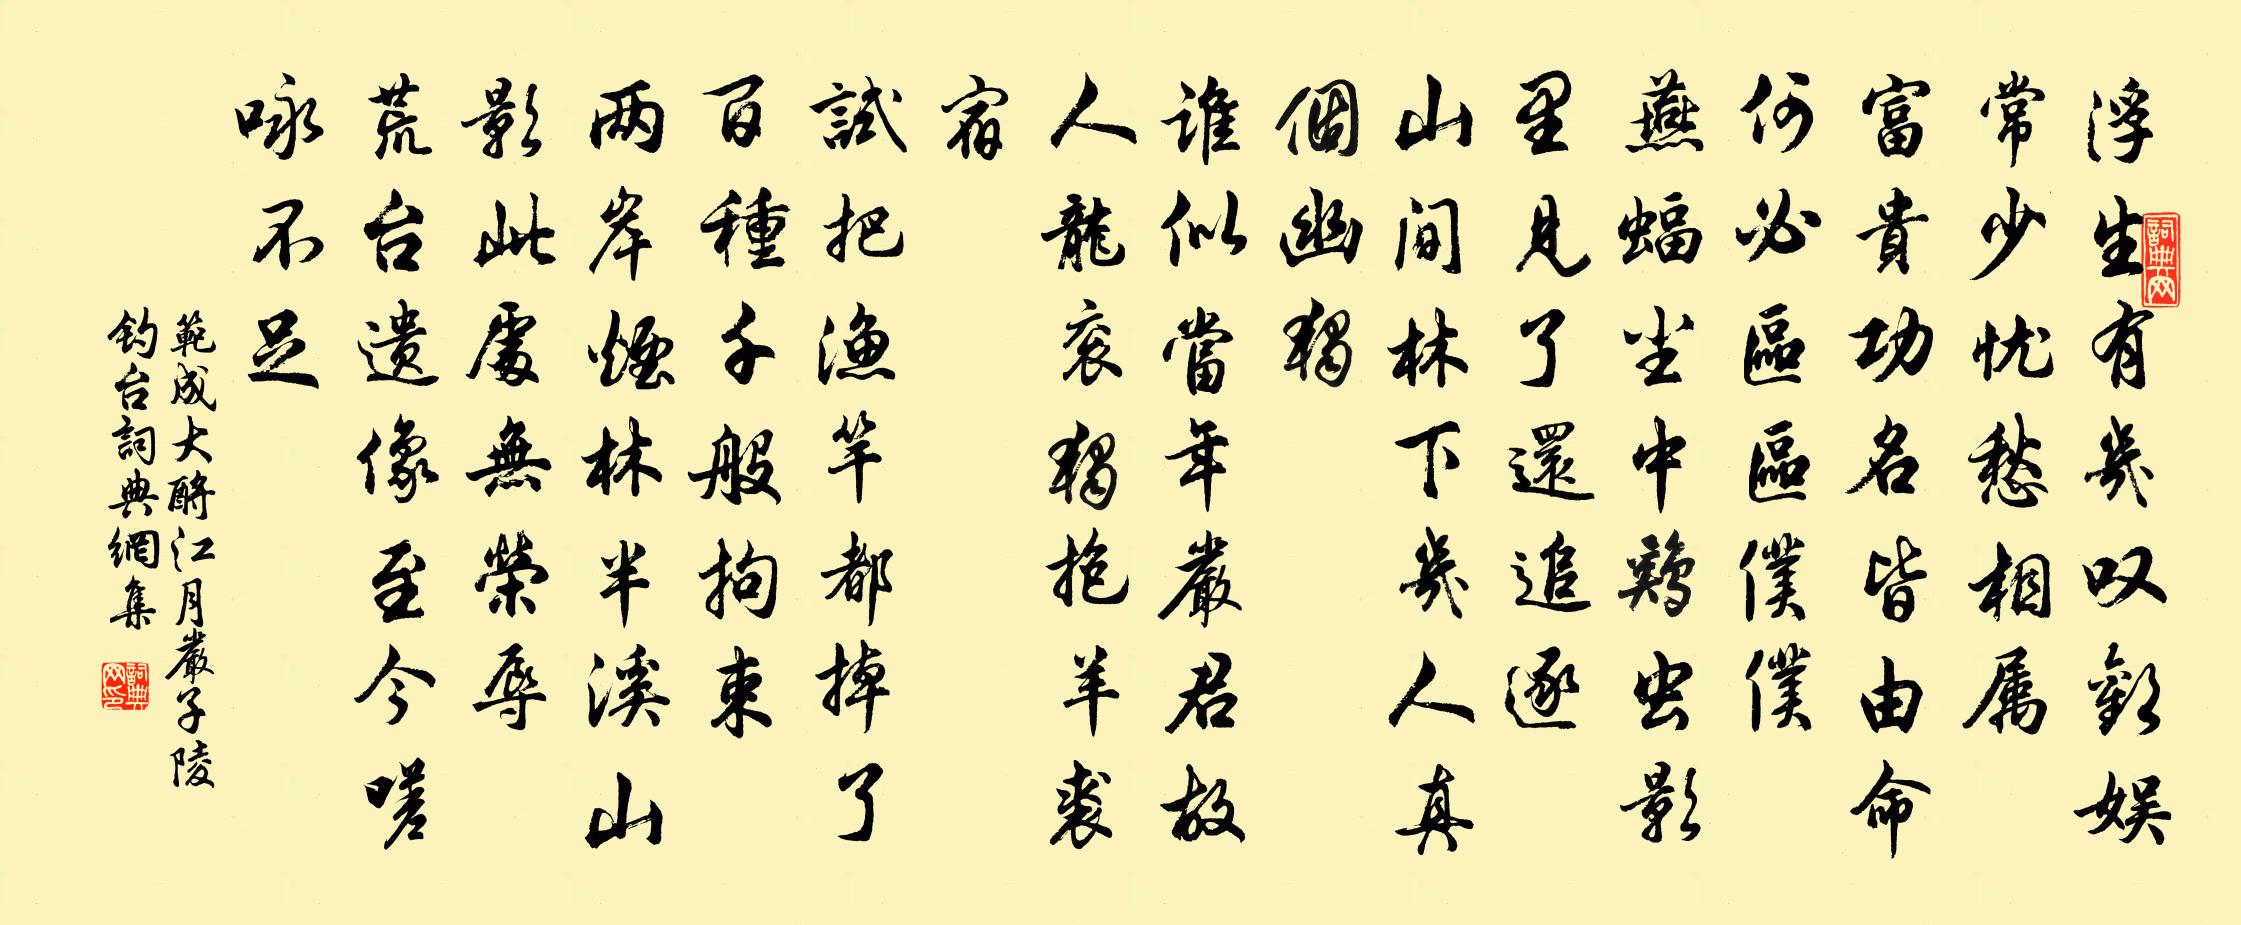 詞典网
浮生有幾叹歡娱
常少忧愁相属
富貴功名皆由命
何必區區僕僕
燕蝠尘中鷄虫影
里見了還追逐
山间林下幾人真
個幽獨
谁似當年嚴君故
人龍衮獨抱羊裘
宿
試把漁竿都掉了
百種千般拘束
两岸煙林半溪山
影此處無榮辱
荒台遗像至今嗟
咏不足
範成大酹江月嚴子陵
钓台詞典網集
詞典网印